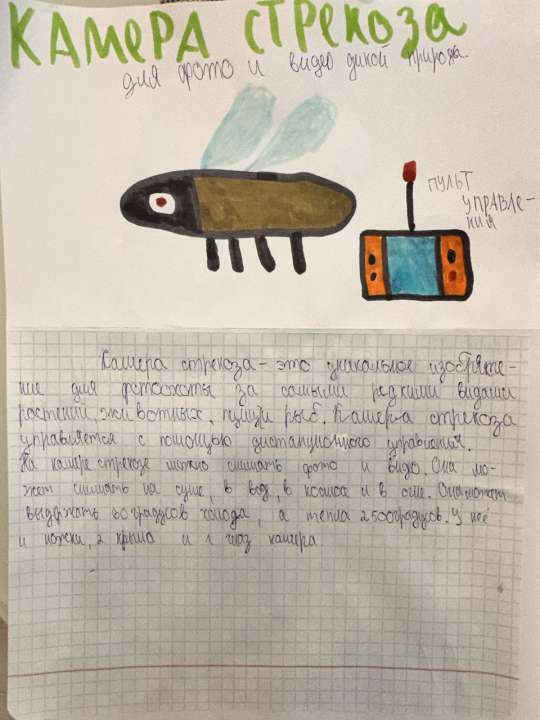 КАМЕРА СТРЕКОЗА
для фото и видео дикой природы.
ПУЛЬТ
УПРАВЛЕ-
НИЯ
Камера стрекоза - это уникальное изобрете-
ние для фотоохоты за самыми редкими видами
растений, животных, птиц и рыб. Камера стрекоза
управляется с помощью дистанционного управления.
На камере стрекозе можно снимать фото и видо. Она мо-
жет снимать на суше, в воде, в космосе и в огне. Она может
выдержать 60 градусов холода, а тепла 2500градусов. У неё
4 ножки, 2 крыла и 1 глаз камера